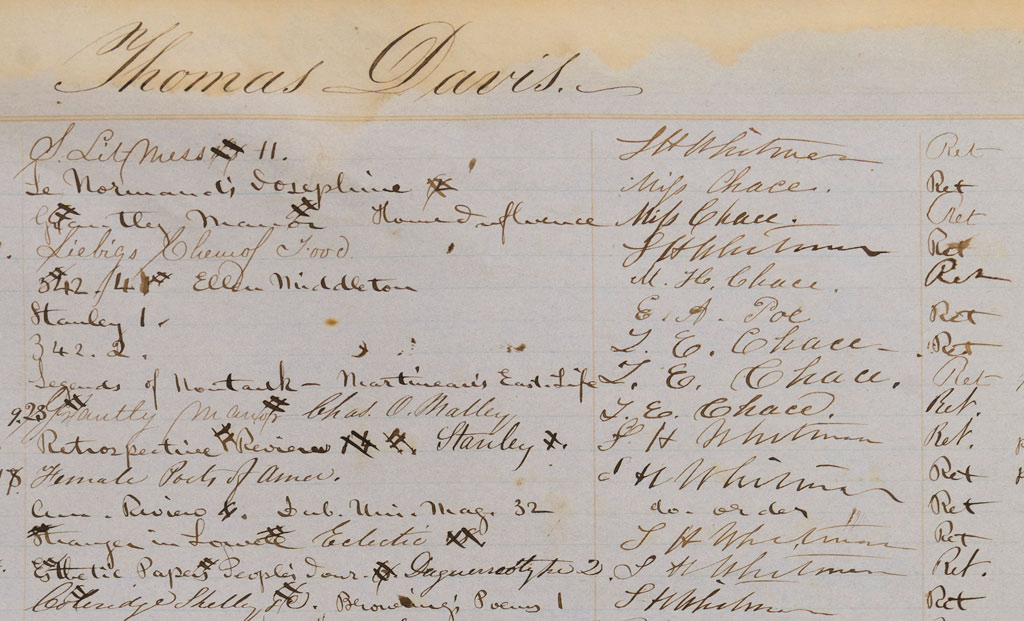 Thomas Davis.
S. Lit Mess 11. S H Whitman Ret
Le Normand's Josephine Miss Chace. Ret
Grantley Manor Home Influence Miss Chace. Ret
Liebigs Chem of Food S H Whitman Ret
342. 41 Ellen Middleton M. H. Chace. Ret
Stanley 1. E. A. Poe Ret
342. 2. L. E. Chace Ret
Legends of Montauk - Martineau's East. Life L. E. Chace. Ret
9.23 Grantly Manor Chas. O. Malley L. E. Chace. Ret.
Retrospective Review Stanley S H Whitman Ret.
18 Female Poets of Amer. H Whitman Ret
Am. Review 6. Dub. Uni. Mag. 32 do. order Ret
Stranger in Lowell Eclectic S H Whitman Ret
Esthetic Papers People's Jour. Daguerreotype 2. S H Whitman Ret.
Coleridge Shelly &c. Browning's Poems 1 S H Whitman Ret